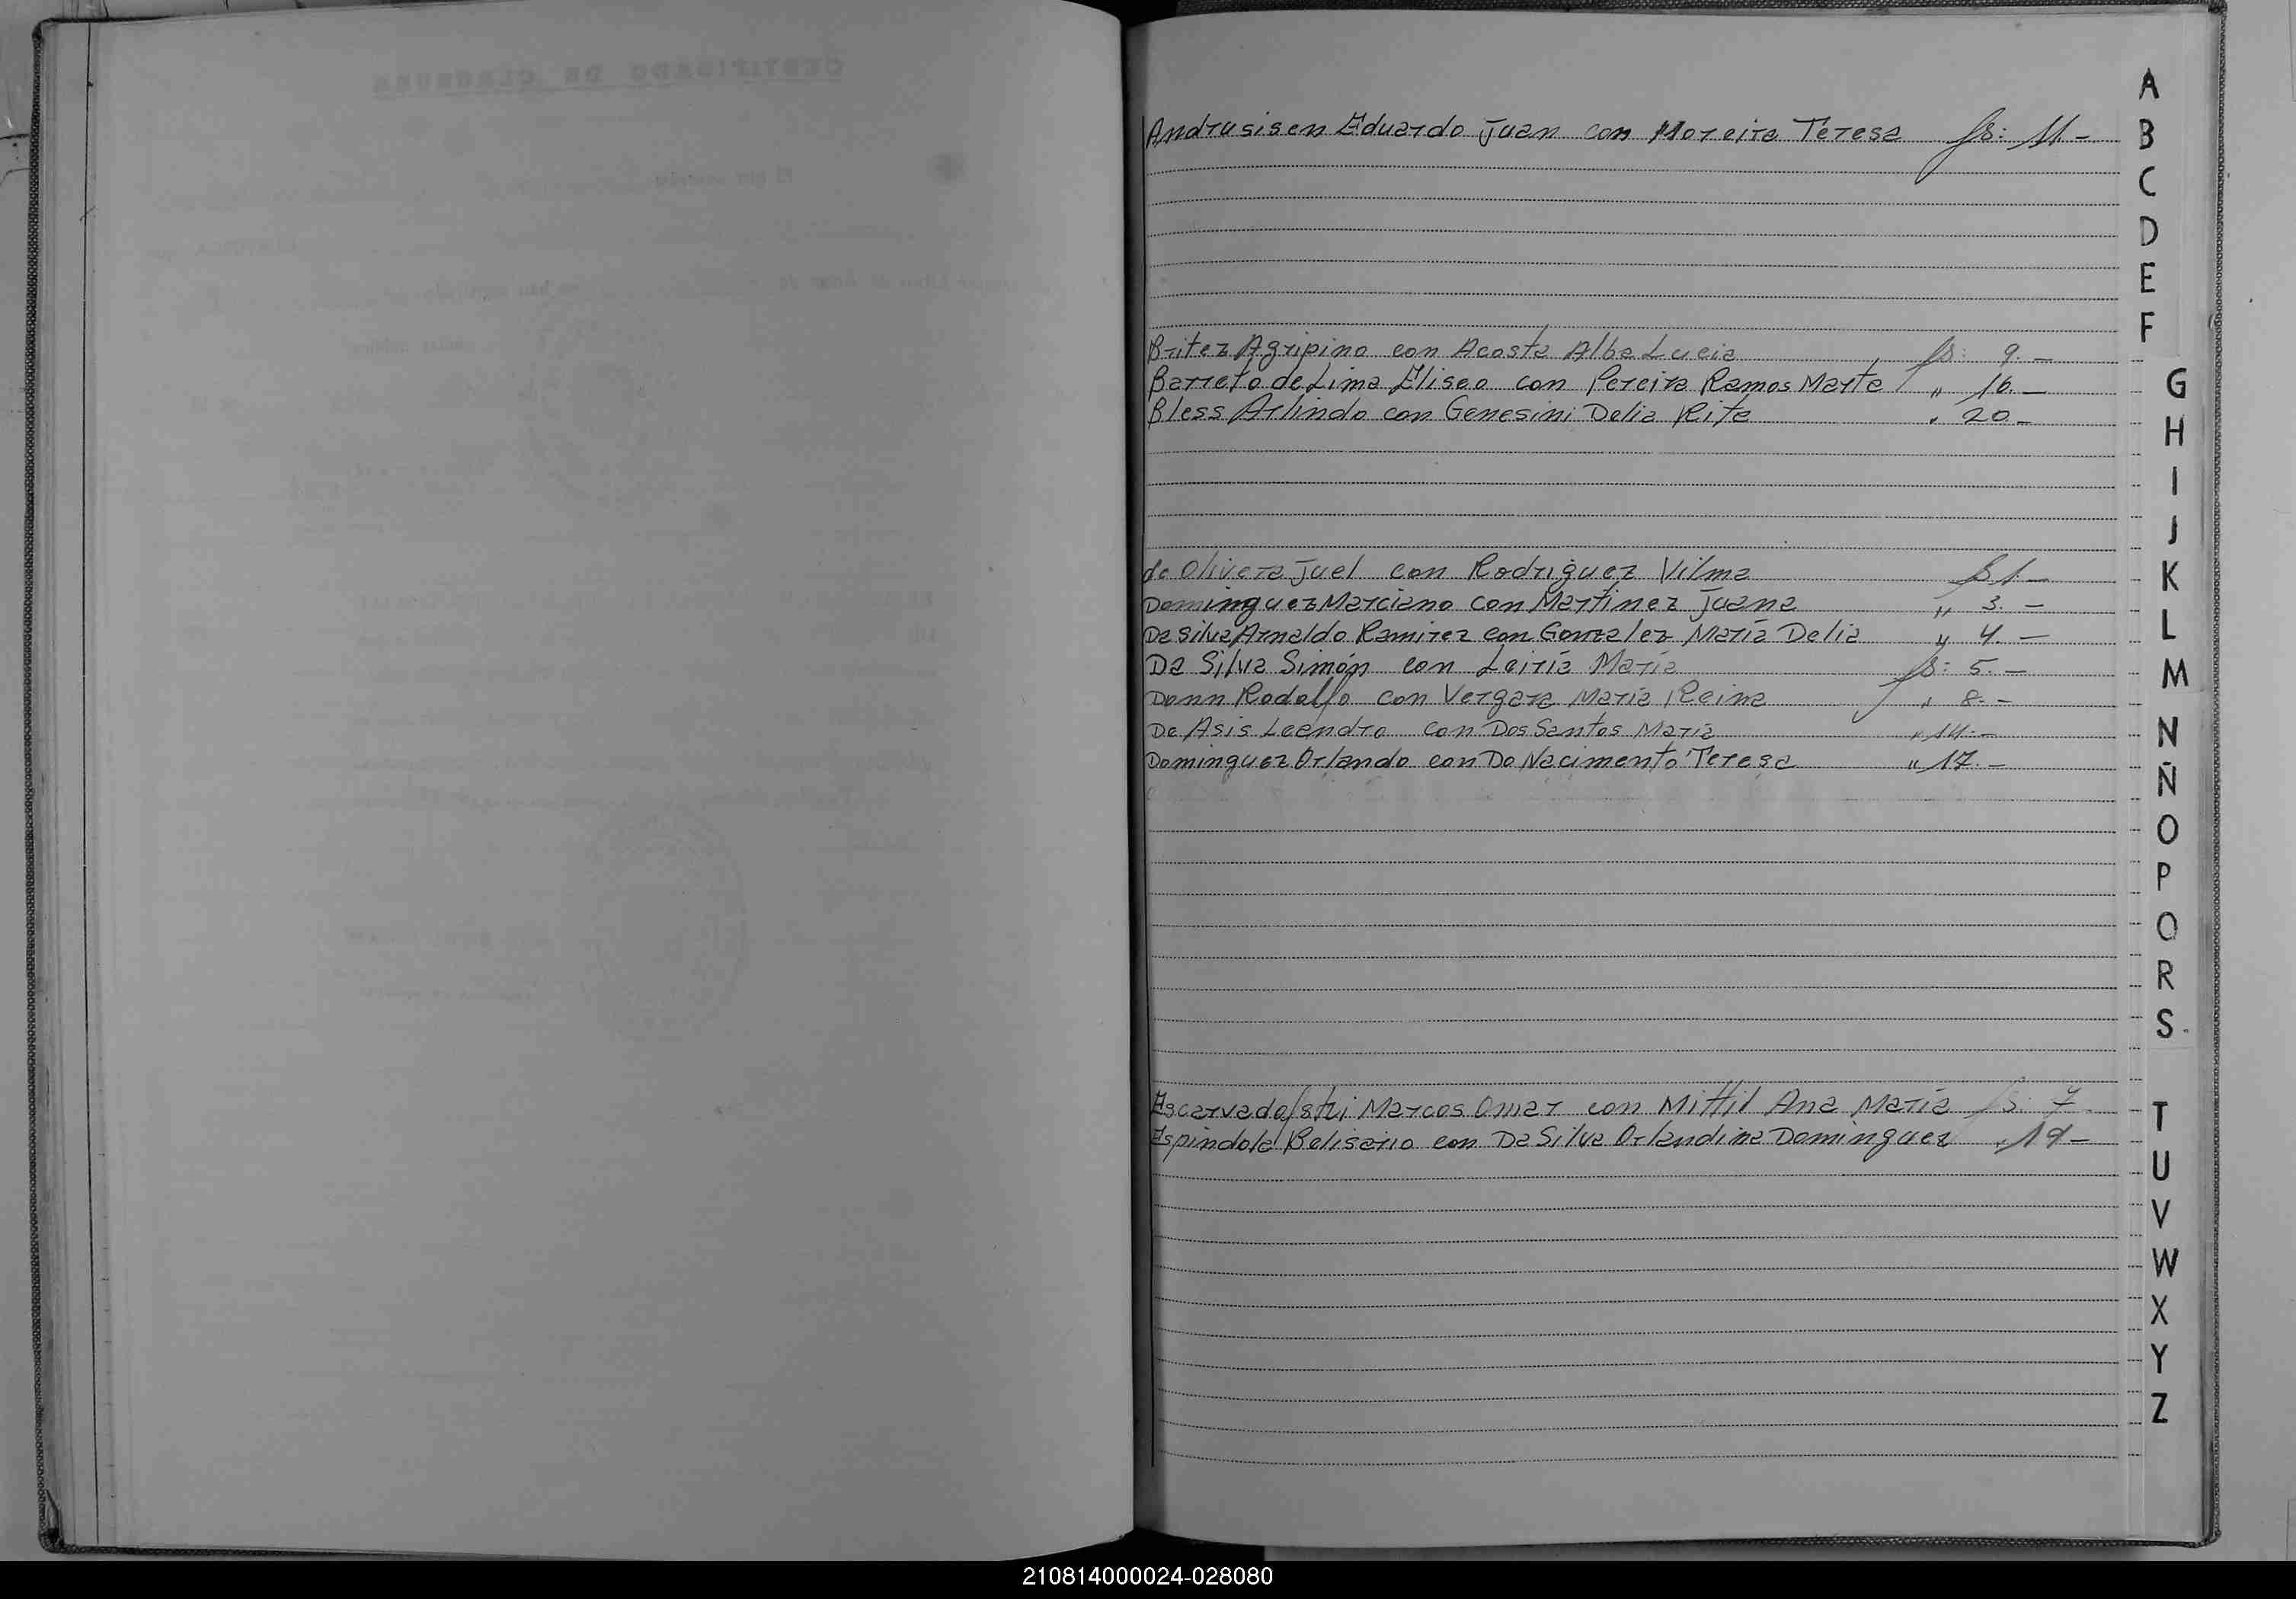 Andrusisen Eduardo Juan con Moreira Teresa fs: 11.-
Britez Agripino con Acosta Alba Lucia fs: 9.-
Barreto de Lima Eliseo con Pereira Ramos Marta " 16.-
Bless Arlindo con Genesini Delia Rita " 20.-
de Olivera Juel con Rodriguez Vilma fs 1.-
Dominguez Marciano con Martinez Juana " 3.-
Da Silva Arnaldo Ramirez con Gonzalez María Delia " 4.-
Da Silva Simón con Leiria María fs: 5.-
Donn Rodolfo con Vergara María Reina " 8.-
De Asis Leandro con Dos Santos María " 14.-
Dominguez Orlando con Do Nacimento Teresa " 17.-
Marcos Omar con Mittil Ana María fs: 7
Espindola Belisario con Da Silva Orlandina Dominguez " 19-
A
B
C
D
E
F
G
H
I
J
K
L
M
N
Ñ
O
P
Q
R
S
T
U
V
W
X
Y
Z
210814000024-028080